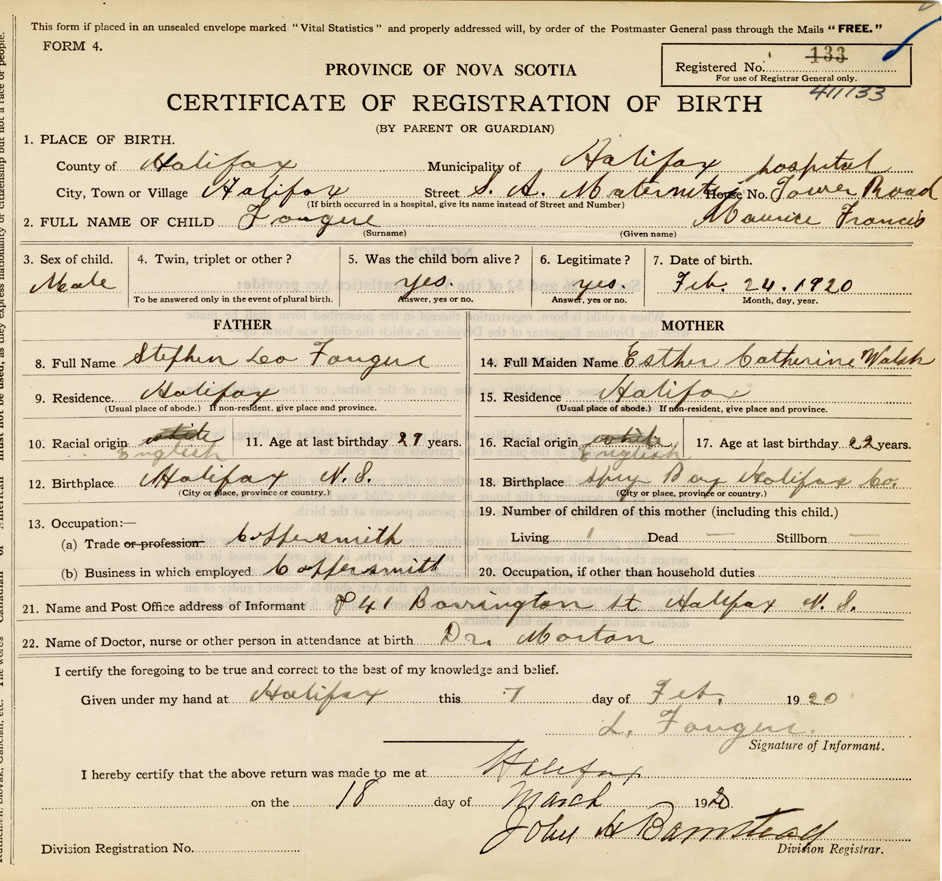 This form if placed in an unsealed envelope marked "Vital Statistics" and properly addressed will, by order of the Postmaster General pass through the Mails "FREE."
FORM 4.
Registered No. 133
For use of Registrar General only.
411133
PROVINCE OF NOVA SCOTIA
CERTIFICATE OF REGISTRATION OF BIRTH
(BY PARENT OR GUARDIAN)
1. PLACE OF BIRTH.
County of Halifax Municipality of Halifax
City, Town or Village Halifax Street S. A. Maternity hospital House No. Tower Road
(If birth occurred in a hospital, give its name instead of Street and Number)
2. FULL NAME OF CHILD Fougere Maurice Francis
(Surname) (Given name)
3. Sex of child. Male
4. Twin, triplet or other?
To be answered only in the event of plural birth.
5. Was the child born alive? yes.
Answer, yes or no.
6. Legitimate? yes.
Answer, yes or no.
7. Date of birth. Feb. 24. 1920
Month, day, year.
FATHER
8. Full Name Stephen Leo Fougere
9. Residence. Halifax
(Usual place of abode.) If non-resident, give place and province.
10. Racial origin white English 11. Age at last birthday 27 years.
12. Birthplace Halifax N. S.
(City or place, province or country.)
13. Occupation:—
(a) Trade or profession: Coppersmith
(b) Business in which employed Coppersmith
MOTHER
14. Full Maiden Name Esther Catherine Walsh
15. Residence Halifax
(Usual place of abode.) If non-resident, give place and province.
16. Racial origin white English 17. Age at last birthday 22 years.
18. Birthplace Spry Bay Halifax Co.
(City or place, province or country.)
19. Number of children of this mother (including this child.)
Living 1 Dead — Stillborn —
20. Occupation, if other than household duties
21. Name and Post Office address of Informant 841 Barrington St Halifax N. S.
22. Name of Doctor, nurse or other person in attendance at birth Dr. Morton
I certify the foregoing to be true and correct to the best of my knowledge and belief.
Given under my hand at Halifax this 7 day of Feb. 1920
L. Fougere.
Signature of Informant.
I hereby certify that the above return was made to me at Halifax
on the 18 day of March 1920.
John H Barnstead
Division Registration No. Division Registrar.